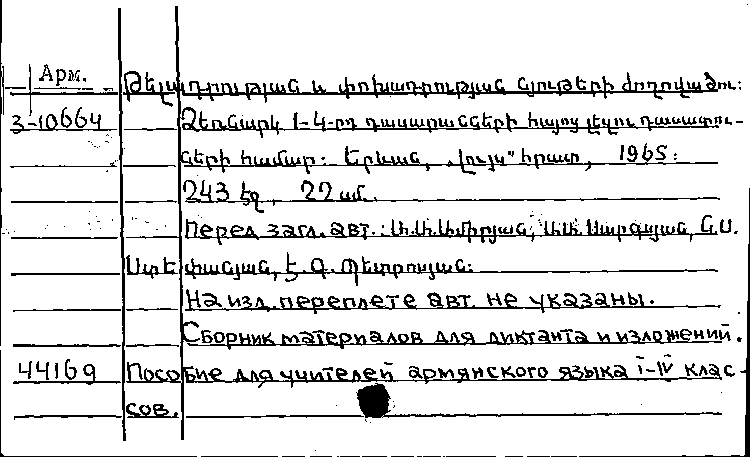 Арм. Թելադրության և փոխադրության նյութերի ժողովածու:
3-10664 Ձեռնարկ 1-4-րդ դասարանների հայոց լեզվի դասատու-
ների համար: Երևան, „Լույս" հրատ, 1965:
243 էջ, 22 սմ.
Перед загл. авт.: Ա.Ա.Ամիրյան, Ա.Ա.Սարգսյան, Ս.
Ստեփանյան, Է. Գ. Պետրոսյան:
На изд. переплете авт. не указаны.
Сборник материалов для диктанта и изложений.
44169 Пособие для учителей армянского языка I-IV клас-
сов.